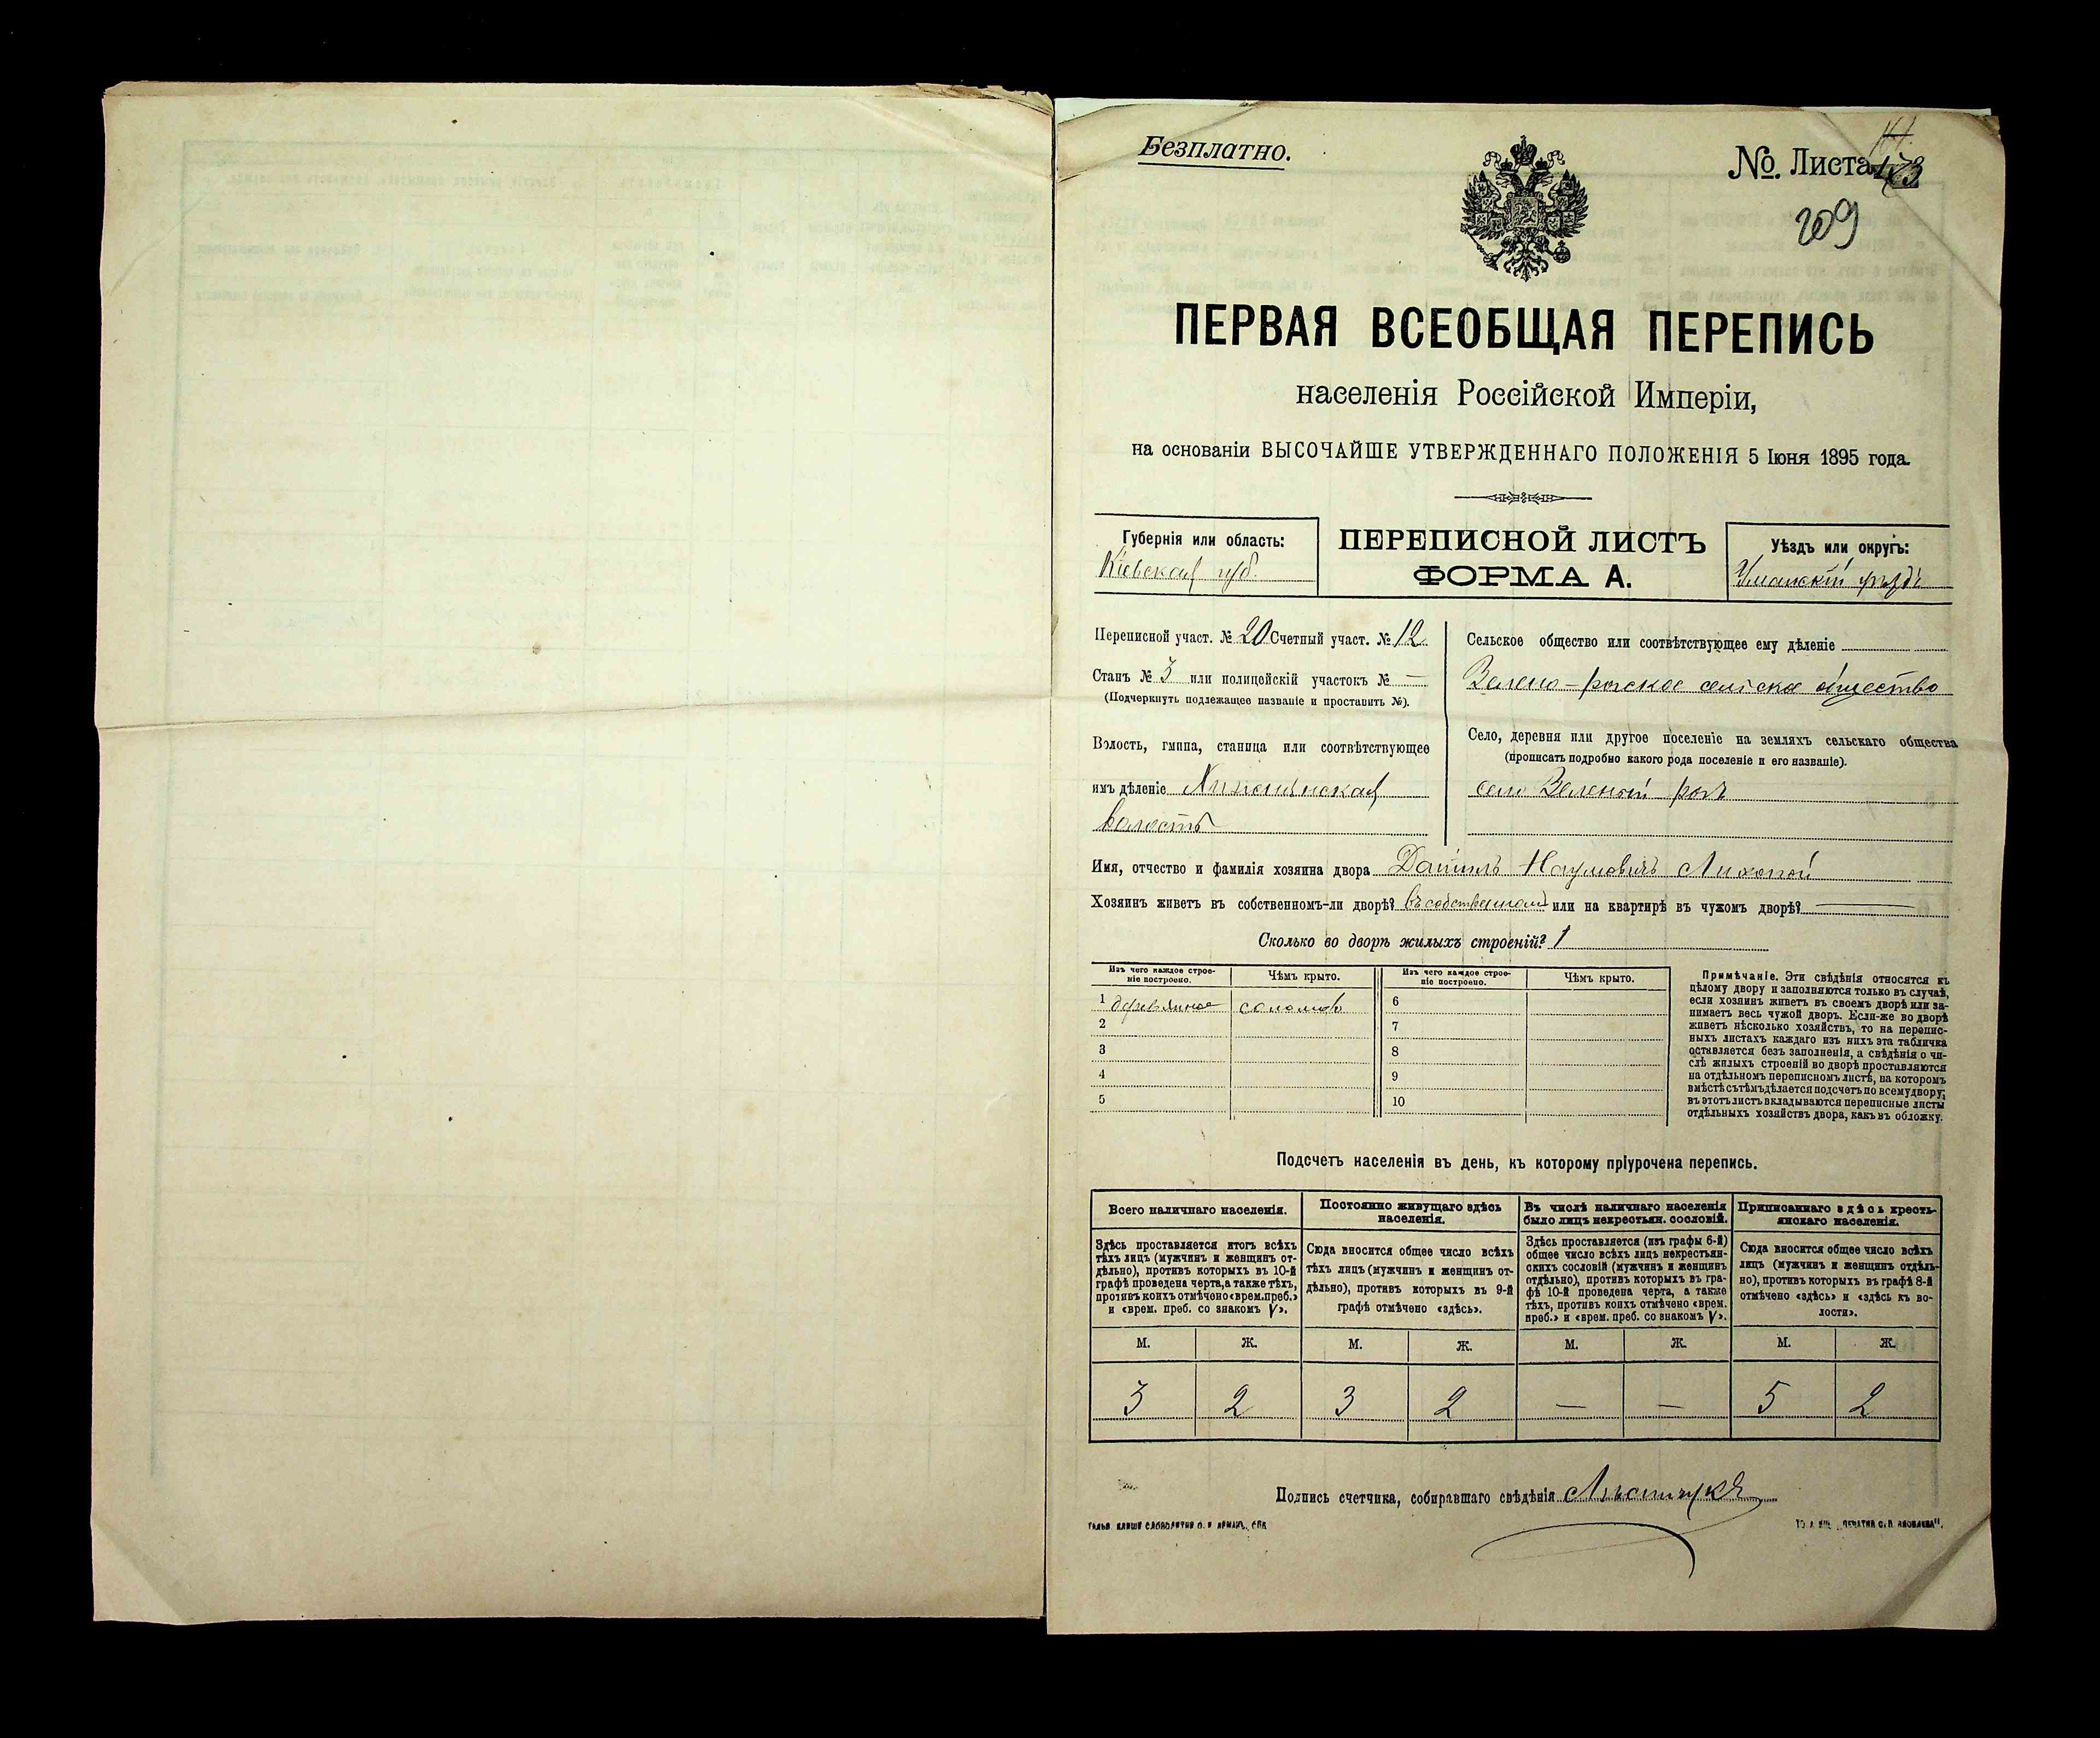 Безплатно.
№. Листа 173
209
ПЕРВАЯ ВСЕОБЩАЯ ПЕРЕПИСЬ
населенія Россійской Имперіи,
на основаніи ВЫСОЧАЙШЕ УТВЕРЖДЕННАГО ПОЛОЖЕНІЯ 5 Іюня 1895 года.
Губернія или область:
Кіевская губ.
ПЕРЕПИСНОЙ ЛИСТЪ
ФОРМА А.
Уѣздъ или округъ:
Уманскій уѣздъ
Переписной участ. № 20 Счетный участ. № 12
Станъ № 3 или полицейскій участокъ № —
(Подчеркнуть подлежащее названіе и проставить №).
Волость, гмина, станица или соотвѣтствующее
имъ дѣленіе
волость
Сельское общество или соотвѣтствующее ему дѣленіе
Зелено-рогское сельское общество
Село, деревня или другое поселеніе на земляхъ сельскаго общества
(прописать подробно какого рода поселеніе и его названіе).
село Зеленый рогъ
Имя, отчество и фамилія хозяина двора Даніилъ Наумовичъ Лихопой
Хозяинъ живетъ въ собственномъ-ли дворѣ? въ собственномъ или на квартирѣ въ чужомъ дворѣ? —
Сколько во дворѣ жилыхъ строеній? 1
Изъ чего каждое строе-
ніе построено.
Чѣмъ крыто.
Изъ чего каждое строе-
ніе построено.
Чѣмъ крыто.
1 деревянное соломою 6
2 7
3 8
4 9
5 10
Примѣчаніе. Эти свѣдѣнія относятся къ
цѣлому двору и заполняются только въ случаѣ,
если хозяинъ живетъ въ своемъ дворѣ или за-
нимаетъ весь чужой дворъ. Если-же во дворѣ
живетъ нѣсколько хозяйствъ, то на перепис-
ныхъ листахъ каждаго изъ нихъ эта табличка
оставляется безъ заполненія, а свѣдѣнія о чи-
слѣ жилыхъ строеній во дворѣ проставляются
на отдѣльномъ переписномъ листѣ, на которомъ
вмѣстѣ съ тѣмъ дѣлается подсчетъ по всему двору;
въ этотъ листъ вкладываются переписные листы
отдѣльныхъ хозяйствъ двора, какъ въ обложку.
Подсчетъ населенія въ день, къ которому пріурочена перепись.
Всего наличнаго населенія.
Постоянно живущаго здѣсь
населенія.
Въ числѣ наличнаго населенія
было лицъ некрестьян. сословій.
Приписаннаго здѣсь кресть-
янскаго населенія.
Здѣсь проставляется итогъ всѣхъ
тѣхъ лицъ (мужчинъ и женщинъ от-
дѣльно), противъ которыхъ въ 10-й
графѣ проведена черта, а также тѣхъ,
противъ коихъ отмѣчено «врем. преб.»
и «врем. преб. со знакомъ V».
Сюда вносится общее число всѣхъ
тѣхъ лицъ (мужчинъ и женщинъ от-
дѣльно), противъ которыхъ въ 9-й
графѣ отмѣчено «здѣсь».
Здѣсь проставляется (изъ графы 6-й)
общее число всѣхъ лицъ некрестьян-
скихъ сословій (мужчинъ и женщинъ
отдѣльно), противъ которыхъ въ гра-
фѣ 10-й проведена черта, а также
тѣхъ, противъ коихъ отмѣчено «врем.
преб.» и «врем. преб. со знакомъ V».
Сюда вносится общее число всѣхъ
лицъ (мужчинъ и женщинъ отдѣль-
но), противъ которыхъ въ графѣ 8-й
отмѣчено «здѣсь» и «здѣсь къ во-
лости».
М. Ж. М. Ж. М. Ж. М. Ж.
3 2 3 2 — — 5 2
Подпись счетчика, собиравшаго свѣдѣнія